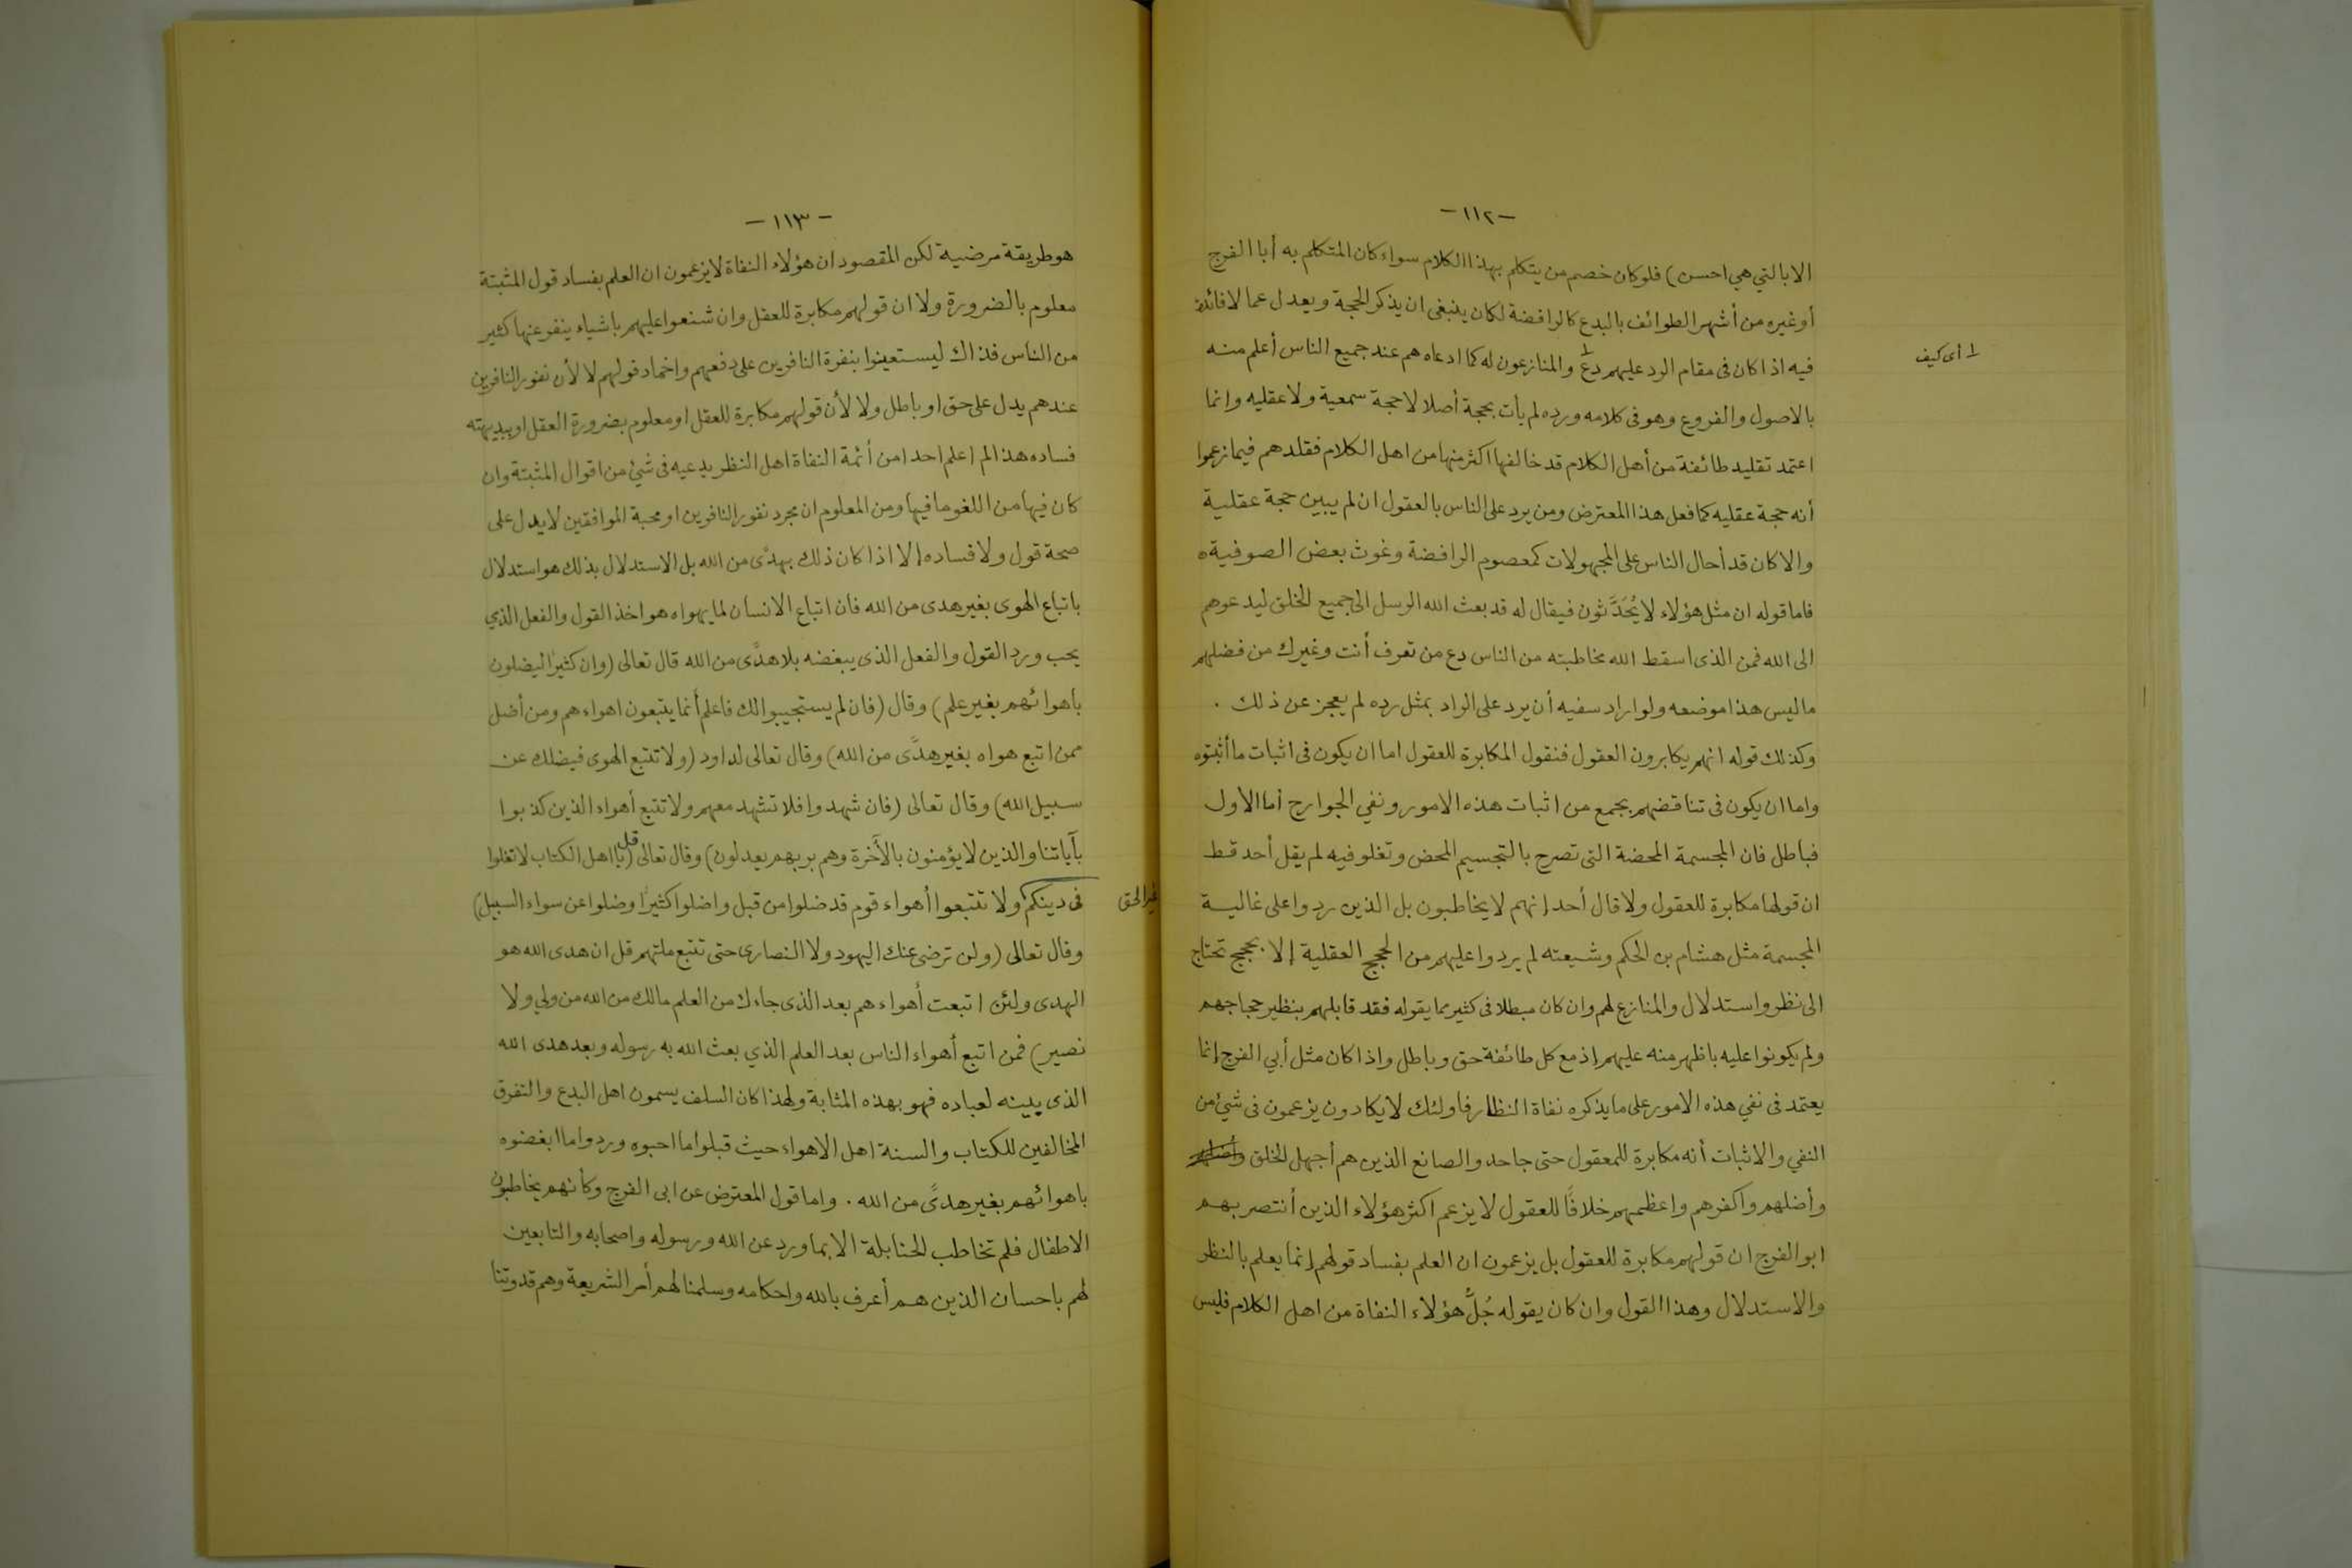 -١١٢-
الا بالتي هي احسن) فلو كان خصم من يتكلم بهذا الكلام سواء كان المتكلم به أبا الفرج
أو غيره من أشهر الطوائف بالبدع كالرافضة لكان ينبغى ان يذكر الحجة ويعدل عما لا فائدة
فيه اذا كان فى مقام الرد عليهم دع١ والمنازعون له كما ادعاه هم عند جميع الناس أعلم منه
١ أى كيف
بالأصول والفروع وهو فى كلامه ورده لم يأت بحجة أصلا لا حجة سمعية ولا عقليه وانما
اعتمد تقليد طائفة من أهل الكلام قد خالفها اكثر منها من اهل الكلام فقلدهم فيما زعموا
أنه حجة عقليه كما فعل هذا المعترض ومن يرد على الناس بالعقول ان لم يبين حجة عقلية
والا كان قد أحال الناس على المجهولات كمعصوم الرافضة وغوث بعض الصوفية ه
فاما قوله ان مثل هؤلاء لا يُحَدَّثون فيقال له قد بعث الله الرسل الى جميع الخلق ليدعوهم
الى الله فمن الذى اسقط الله مخاطبته من الناس دع من تعرف أنت وغيرك من فضلهم
ما ليس هذا موضعه ولو اراد سفيه أن يرد على الراد بمثل رده لم يعجز عن ذلك .
وكذلك قوله انهم يكابرون العقول فنقول المكابرة للعقول اما ان يكون فى اثبات ما أثبتوه
واما ان يكون فى تناقضهم بجمع من اثبات هذه الامور ونفي الجوارح أما الاول
فباطل فان المجسمة المحضة التى تصرح بالتجسيم المحض وتغلو فيه لم يقل أحد قط
ان قولها مكابرة للعقول ولا قال أحد إنهم لا يخاطبون بل الذين ردوا على غالية
المجسمة مثل هشام بن الحكم وشيعته لم يردوا عليهم من الحجج العقلية إلا بحجج تحتاج
الى نظر واستدلال والمنازع لهم وان كان مبطلا فى كثير مما يقوله فقد قابلهم بنظير حجاجهم
ولم يكونوا عليه باظهر منه عليهم إذ مع كل طائفة حق وباطل واذا كان مثل أبي الفرج إنما
يعتمد فى نفي هذه الامور على ما يذكره نفاة النظار فاولئك لا يكادون يزعمون فى شيئ من
النفي والاثبات أنه مكابرة للمعقول حتى جاحدوا الصانع الذين هم أجهل الخلق
وأضلهم واكفرهم واعظمهم خلافًا للعقول لا يزعم اكثر هؤلاء الذين أنتصر بهم
ابو الفرج ان قولهم مكابرة للعقول بل يزعمون ان العلم بفساد قولهم إنما يعلم بالنظر
والاستدلال وهذا القول وان كان يقوله جُلُّ هؤلاء النفاة من اهل الكلام فليس
-١١٣-
هو طريقة مرضية لكن المقصود ان هؤلاء النفاة لا يزعمون ان العلم بفساد قول المثبتة
معلوم بالضرورة ولا ان قولهم مكابرة للعقل وان شنعوا عليهم باشياء ينفر عنها كثير
من الناس فذاك ليستعينوا بنفرة النافرين على دفعهم واخماد قولهم لا لأن نفور النافرين
عندهم يدل على حق او باطل ولا لأن قولهم مكابرة للعقل او معلوم بضرورة العقل او ببديهته
فساده هذا لم اعلم احدا من أئمة النفاة اهل النظر يدعيه فى شيئ من اقوال المثبتة وان
كان فيها من اللغو ما فيها ومن المعلوم ان مجرد نفور النافرين او محبة الموافقين لا يدل على
صحة قول ولا فساده إلا اذا كان ذلك بهدًى من الله بل الاستدلال بذلك هو استدلال
باتباع الهوى بغير هدى من الله فان اتباع الانسان لما يهواه هو اخذ القول والفعل الذي
يحب ورد القول والفعل الذى يبغضه بلا هدًى من الله قال تعالى (وان كثيرًا ليضلون
باهوائهم بغير علم) وقال (فان لم يستجيبوا لك فاعلم أنما يتبعون اهواءهم ومن أضل
ممن اتبع هواه بغير هدًى من الله) وقال تعالى لداود (ولا تتبع الهوى فيضلك عن
سبيل الله) وقال تعالى (فان شهدوا فلا تشهد معهم ولا تتبع أهواء الذين كذبوا
بآياتنا والذين لا يؤمنون بالآخرة وهم بربهم يعدلون) وقال تعالى (قل يا اهل الكتاب لا تغلوا
فى دينكم غير الحق ولا تتبعوا أهواء قوم قد ضلوا من قبل واضلوا كثيرًا وضلوا عن سواء السبيل)
وقال تعالى (ولن ترضى عنك اليهود ولا النصارى حتى تتبع ملتهم قل ان هدى الله هو
الهدى ولئن اتبعت أهواءهم بعد الذى جاءك من العلم مالك من الله من ولي ولا
نصير) فمن اتبع أهواء الناس بعد العلم الذي بعث الله به رسوله وبعد هدى الله
الذى يبينه لعباده فهو بهذه المثابة ولهذا كان السلف يسمون اهل البدع والتفرق
المخالفين للكتاب والسنة اهل الاهواء حيث قبلوا ما احبوه وردوا ما ابغضوه
باهوائهم بغير هدًى من الله . واما قول المعترض عن ابى الفرج وكأنهم يخاطبون
الاطفال فلم تخاطب الحنابلة الا بما ورد عن الله ورسوله واصحابه والتابعين
لهم باحسان الذين هم أعرف بالله واحكامه وسلمنا لهم أمر الشريعة وهم قدوتنا